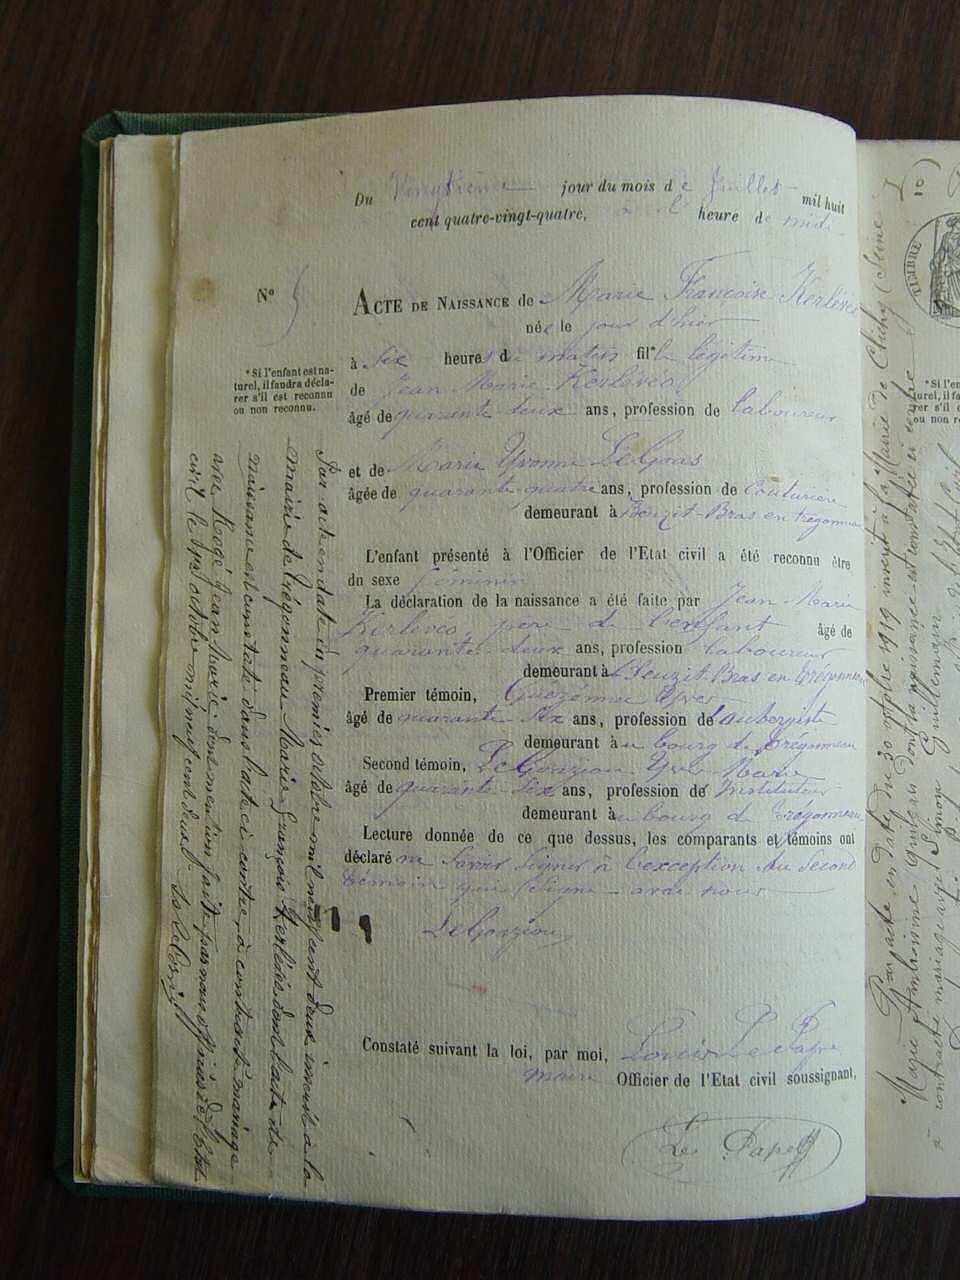 Du Vingtième jour du mois de Juillet mil huit
cent quatre-vingt-quatre, à l' heure de midi
N° 5
ACTE DE NAISSANCE de Marie Françoise Kerlévéo
née le jour d'hier
à six heures du matin fille légitime
*Si l'enfant est na-
turel, il faudra décla-
rer s'il est reconnu
ou non reconnu.
de Jean Marie Kerlévéo
âgé de quarante deux ans, profession de laboureur
et de Marie Yvonne Le Goas
âgée de quarante quatre ans, profession de Couturière
demeurant à Beuzit-Bras en trégonneau
L'enfant présenté à l'Officier de l'Etat civil a été reconnu être
du sexe féminin
La déclaration de la naissance a été faite par Jean Marie
Kerlévéo, père de l'enfant âgé de
quarante deux ans, profession laboureur
demeurant à Beuzit-Bras en trégonneau
Premier témoin, Yves
âgé de quarante six ans, profession d'aubergiste
demeurant au bourg de trégonneau
Second témoin, Le Gonziou Yves Marie
âgé de quarante six ans, profession d'Instituteur
demeurant au bourg de trégonneau
Lecture donnée de ce que dessus, les comparants et témoins ont
déclaré ne savoir signer à l'exception du second
témoin qui signe avec nous
Le Gonziou
Constaté suivant la loi, par moi, Louis Le Pape
maire Officier de l'Etat civil soussignant,
Le Pape
Par acte en date du premier octobre mil neuf cent deux inscrit à la
mairie de Trégonneau Marie Françoise Kerlévéo dont l'acte de
naissance est constaté dans l'acte ci contre, a contracté mariage
avec Rogé Jean Marie. dont mention faite par nous officier de l'état
civil le octobre mil neuf cent deux.
TIMBRE
*Si l'en
turel, il fa
rer s'il e
ou non re
Par acte en date du 30 octobre 1919 inscrit à la Mairie de Clichy (Seine)
Marie Ambroisine dont la naissance est constatée ci contre
contracté mariage avec Simon Guillemain